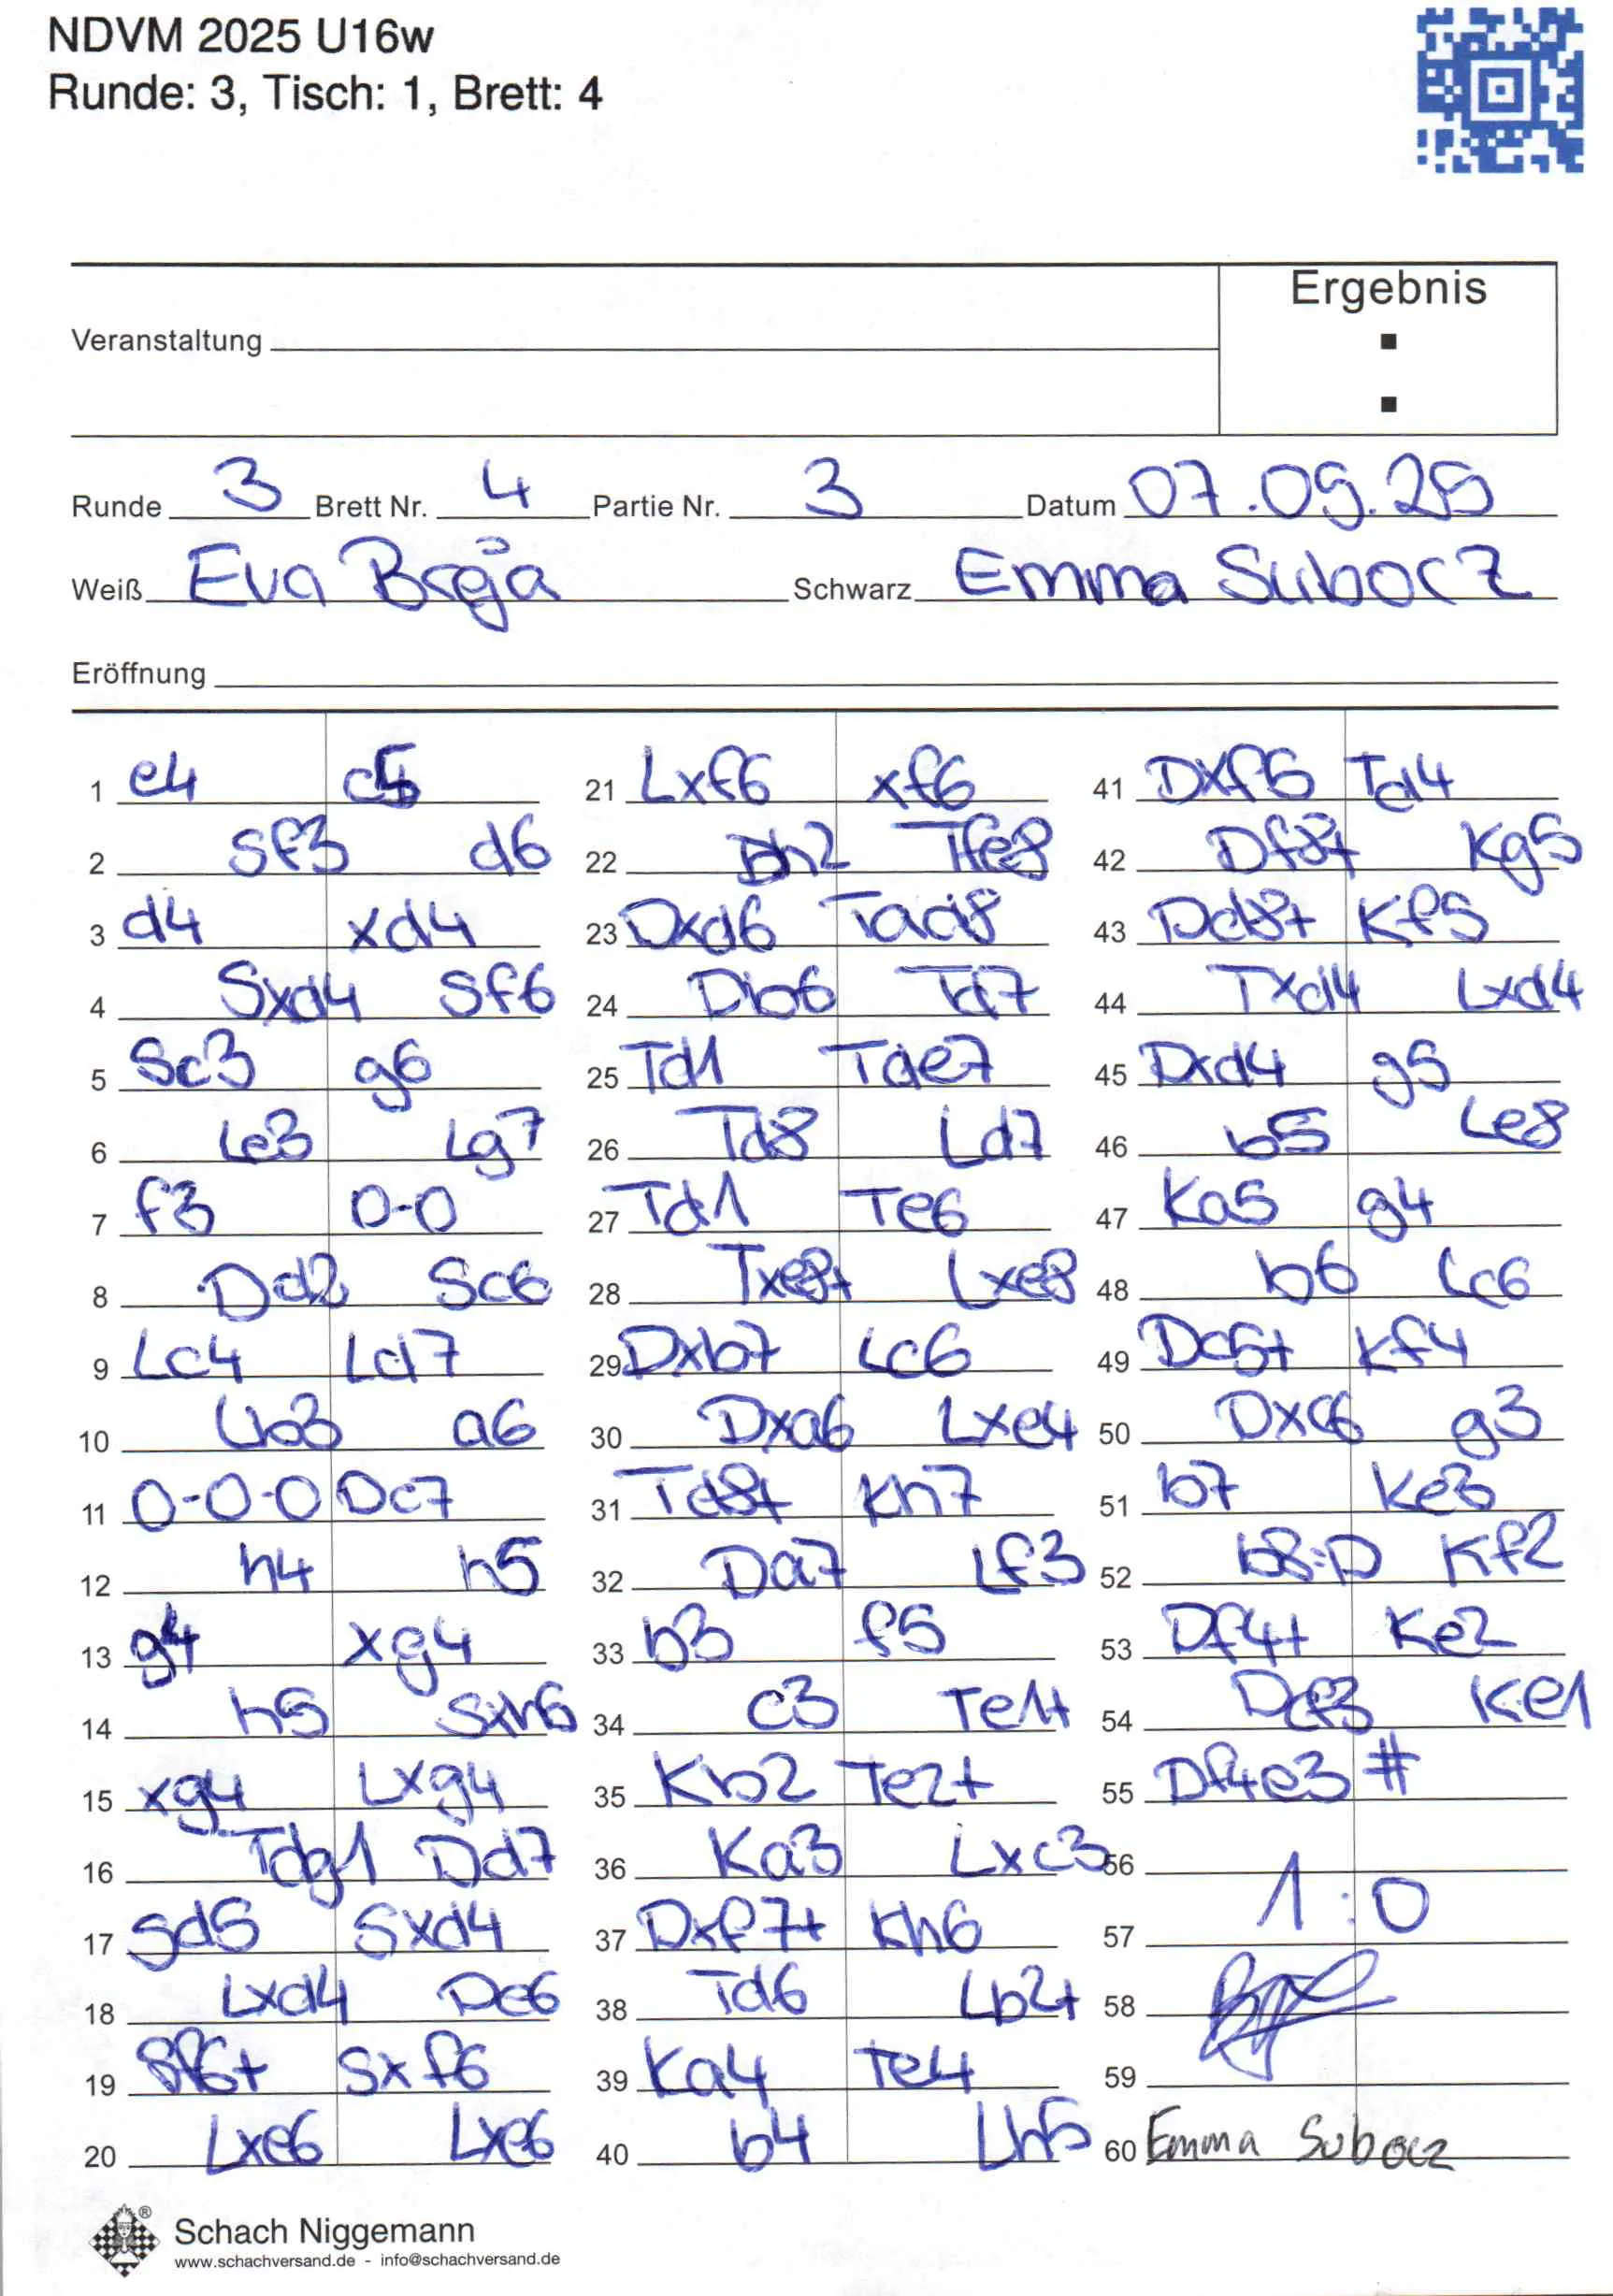 NDVM 2025 U16w
Runde: 3, Tisch: 1, Brett: 4
Ergebnis
Veranstaltung
:
Runde 3 Brett Nr. 4 Partie Nr. 3 Datum 07.09.25
Weiß Eva Breja Schwarz Emma Subocz
Eröffnung
1 e4 c5 21 Lxf6 xf6 41 Dxf5 Td4
2 Sf3 d6 22 Dh2 Tfe8 42 Df8+ Kg5
3 d4 xd4 23 Dxd6 Tad8 43 Dd8+ Kf5
4 Sxd4 Sf6 24 Db6 Td7 44 Txd4 Lxd4
5 Sc3 g6 25 Td1 Tde7 45 Dxd4 g5
6 Le3 Lg7 26 Td8 Ld7 46 b5 Le8
7 f3 0-0 27 Td1 Te6 47 Ka5 g4
8 Dd2 Sc6 28 Txe8+ Lxe8 48 b6 Lc6
9 Lc4 Ld7 29 Dxb7 Lc6 49 Dc5+ Kf4
10 Lb3 a6 30 Dxa6 Lxe4 50 Dxc6 g3
11 0-0-0 Dc7 31 Td8+ Kh7 51 b7 Ke3
12 h4 h5 32 Da7 Lf3 52 b8=D Kf2
13 g4 xg4 33 b3 f5 53 Df4+ Ke2
14 h5 Sxh5 34 c3 Te1+ 54 Dcf3 Ke1
15 xg4 Lxg4 35 Kb2 Te2+ 55 Df4e3 #
16 Tdg1 Dd7 36 Ka3 Lxc3 56
17 Sd5 Sxd4 37 Dxf7+ Kh6 57 1:0
18 Lxd4 De6 38 Td6 Lb2+ 58
19 Sf6+ Sxf6 39 Ka4 Te4 59
20 Lxe6 Lxe6 40 b4 Lh5 60 Emma Subocz
Schach Niggemann
www.schachversand.de - info@schachversand.de